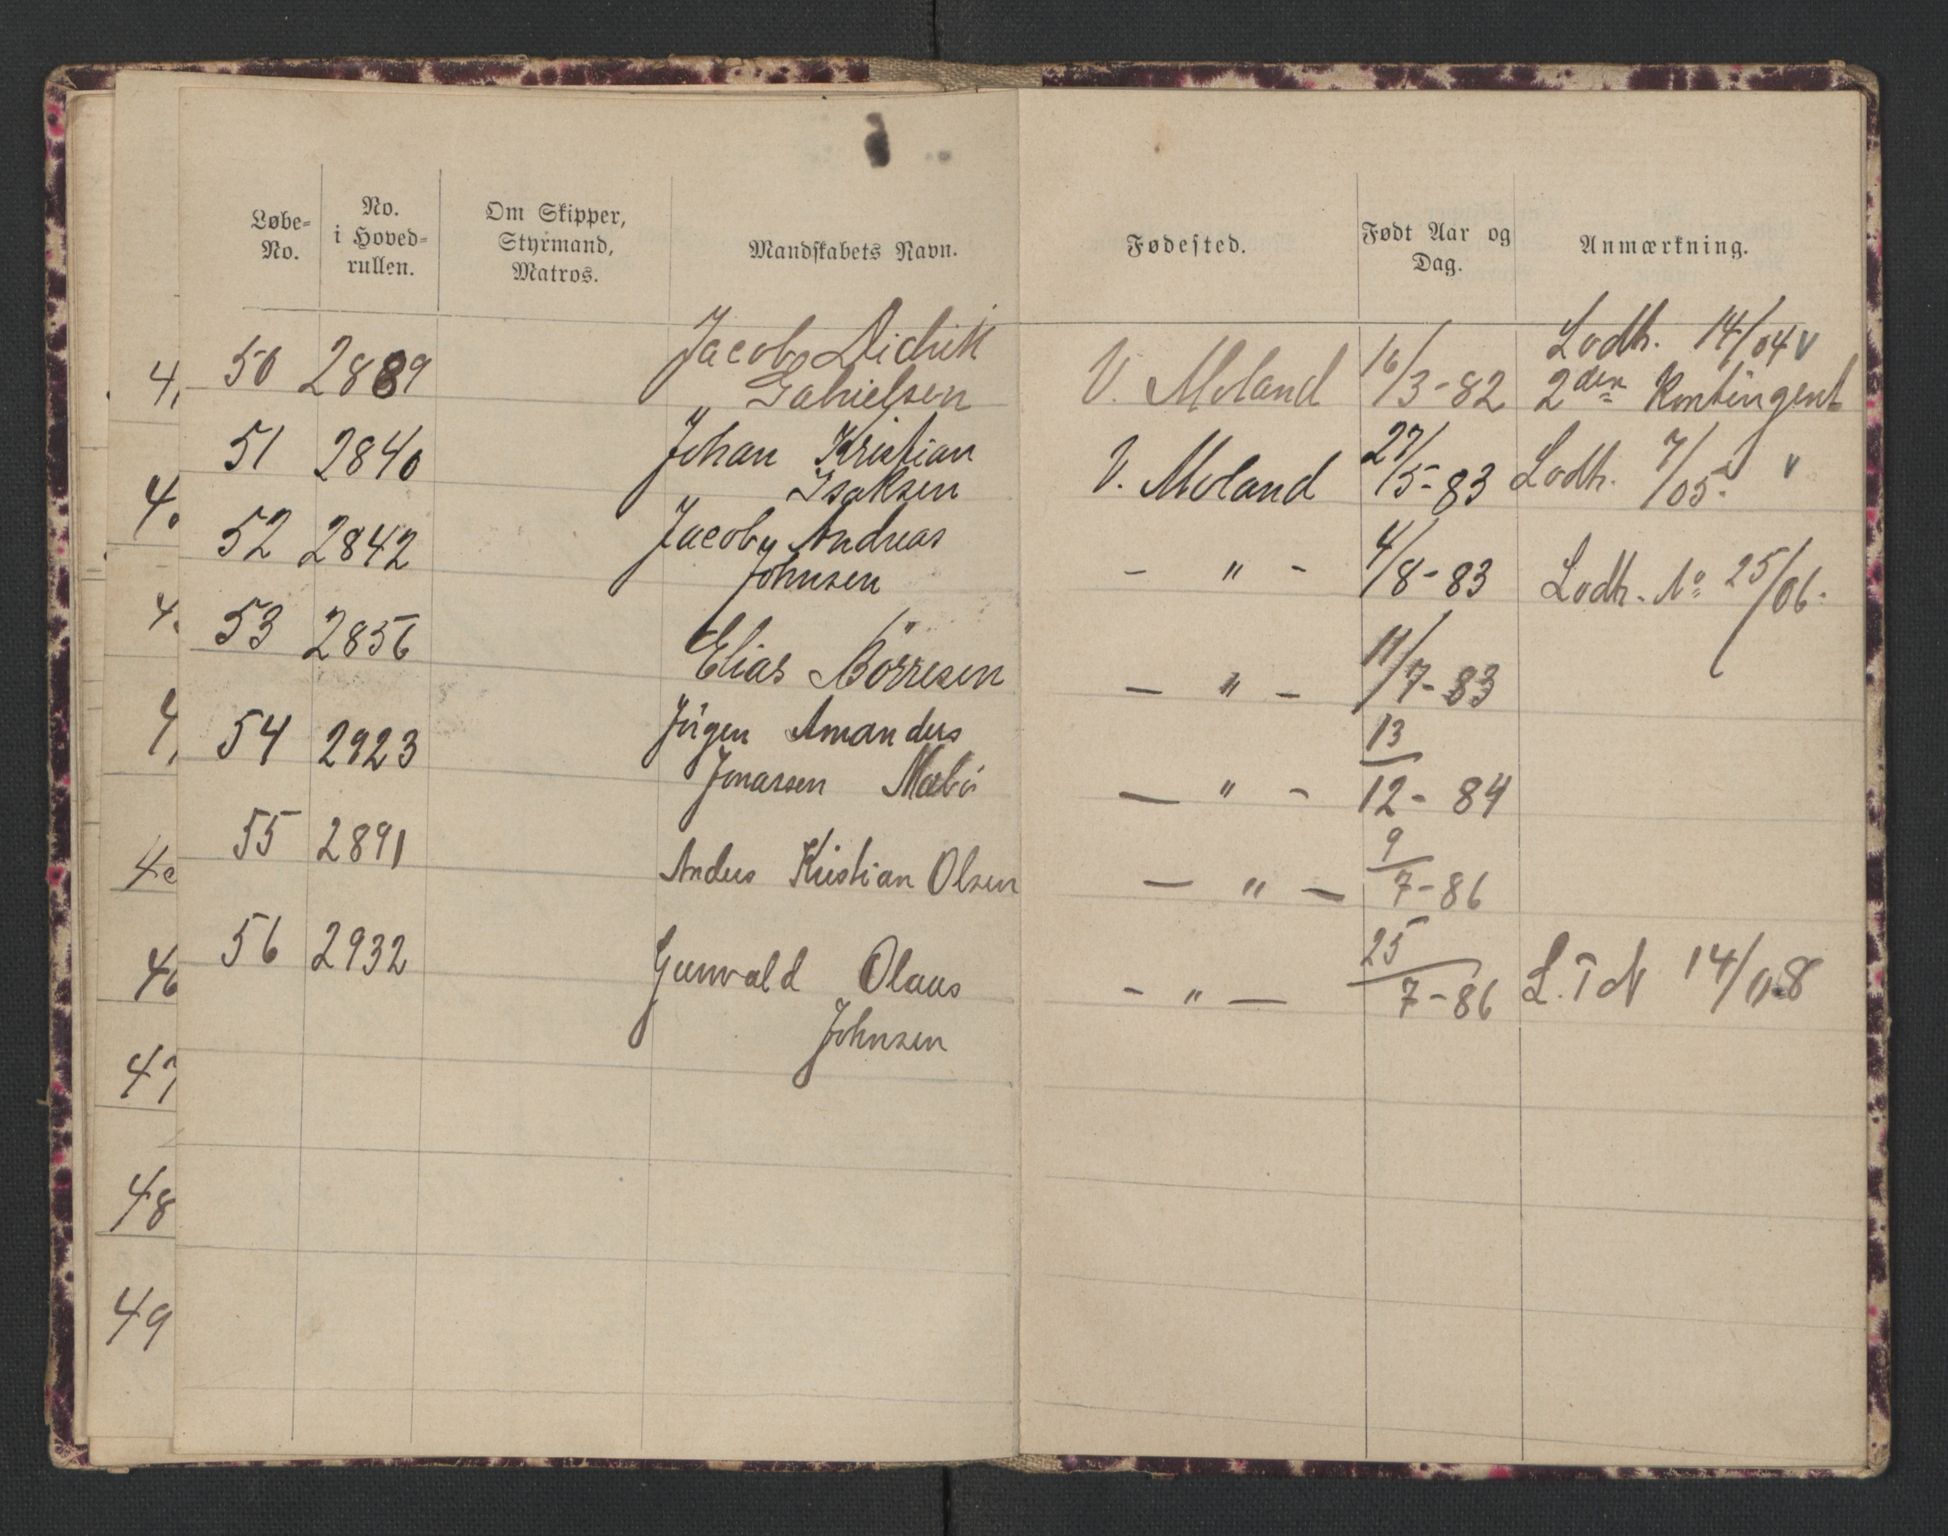 Løbe-No. No. i Hoved-rullen. Om Skipper, Styrmand, Matros. Mandskabets Navn. Fødested. Født Aar og Dag. Anmærkning.
50 2889 Jacob Didrik Gabrielsen V. Moland 16/3-82 Lodh. 14/04 v
2den Kontingent
51 2840 Johan Kristian Isaksen V. Moland 27/5-83 Lodh. 7/05. v
52 2842 Jacob Andreas Johnsen - " - 4/8-83 Lodh. No 25/06.
53 2856 Elias Börresen - " - 11/7-83
54 2923 Jörgen Amandus Jonassen Mæbö - " - 13/12-84
55 2891 Anders Kristian Olsen - " - 9/7-86
56 2932 Gunvald Olaus Johnsen - " - 25/7-86 L.T.N 14/08
47
48
49